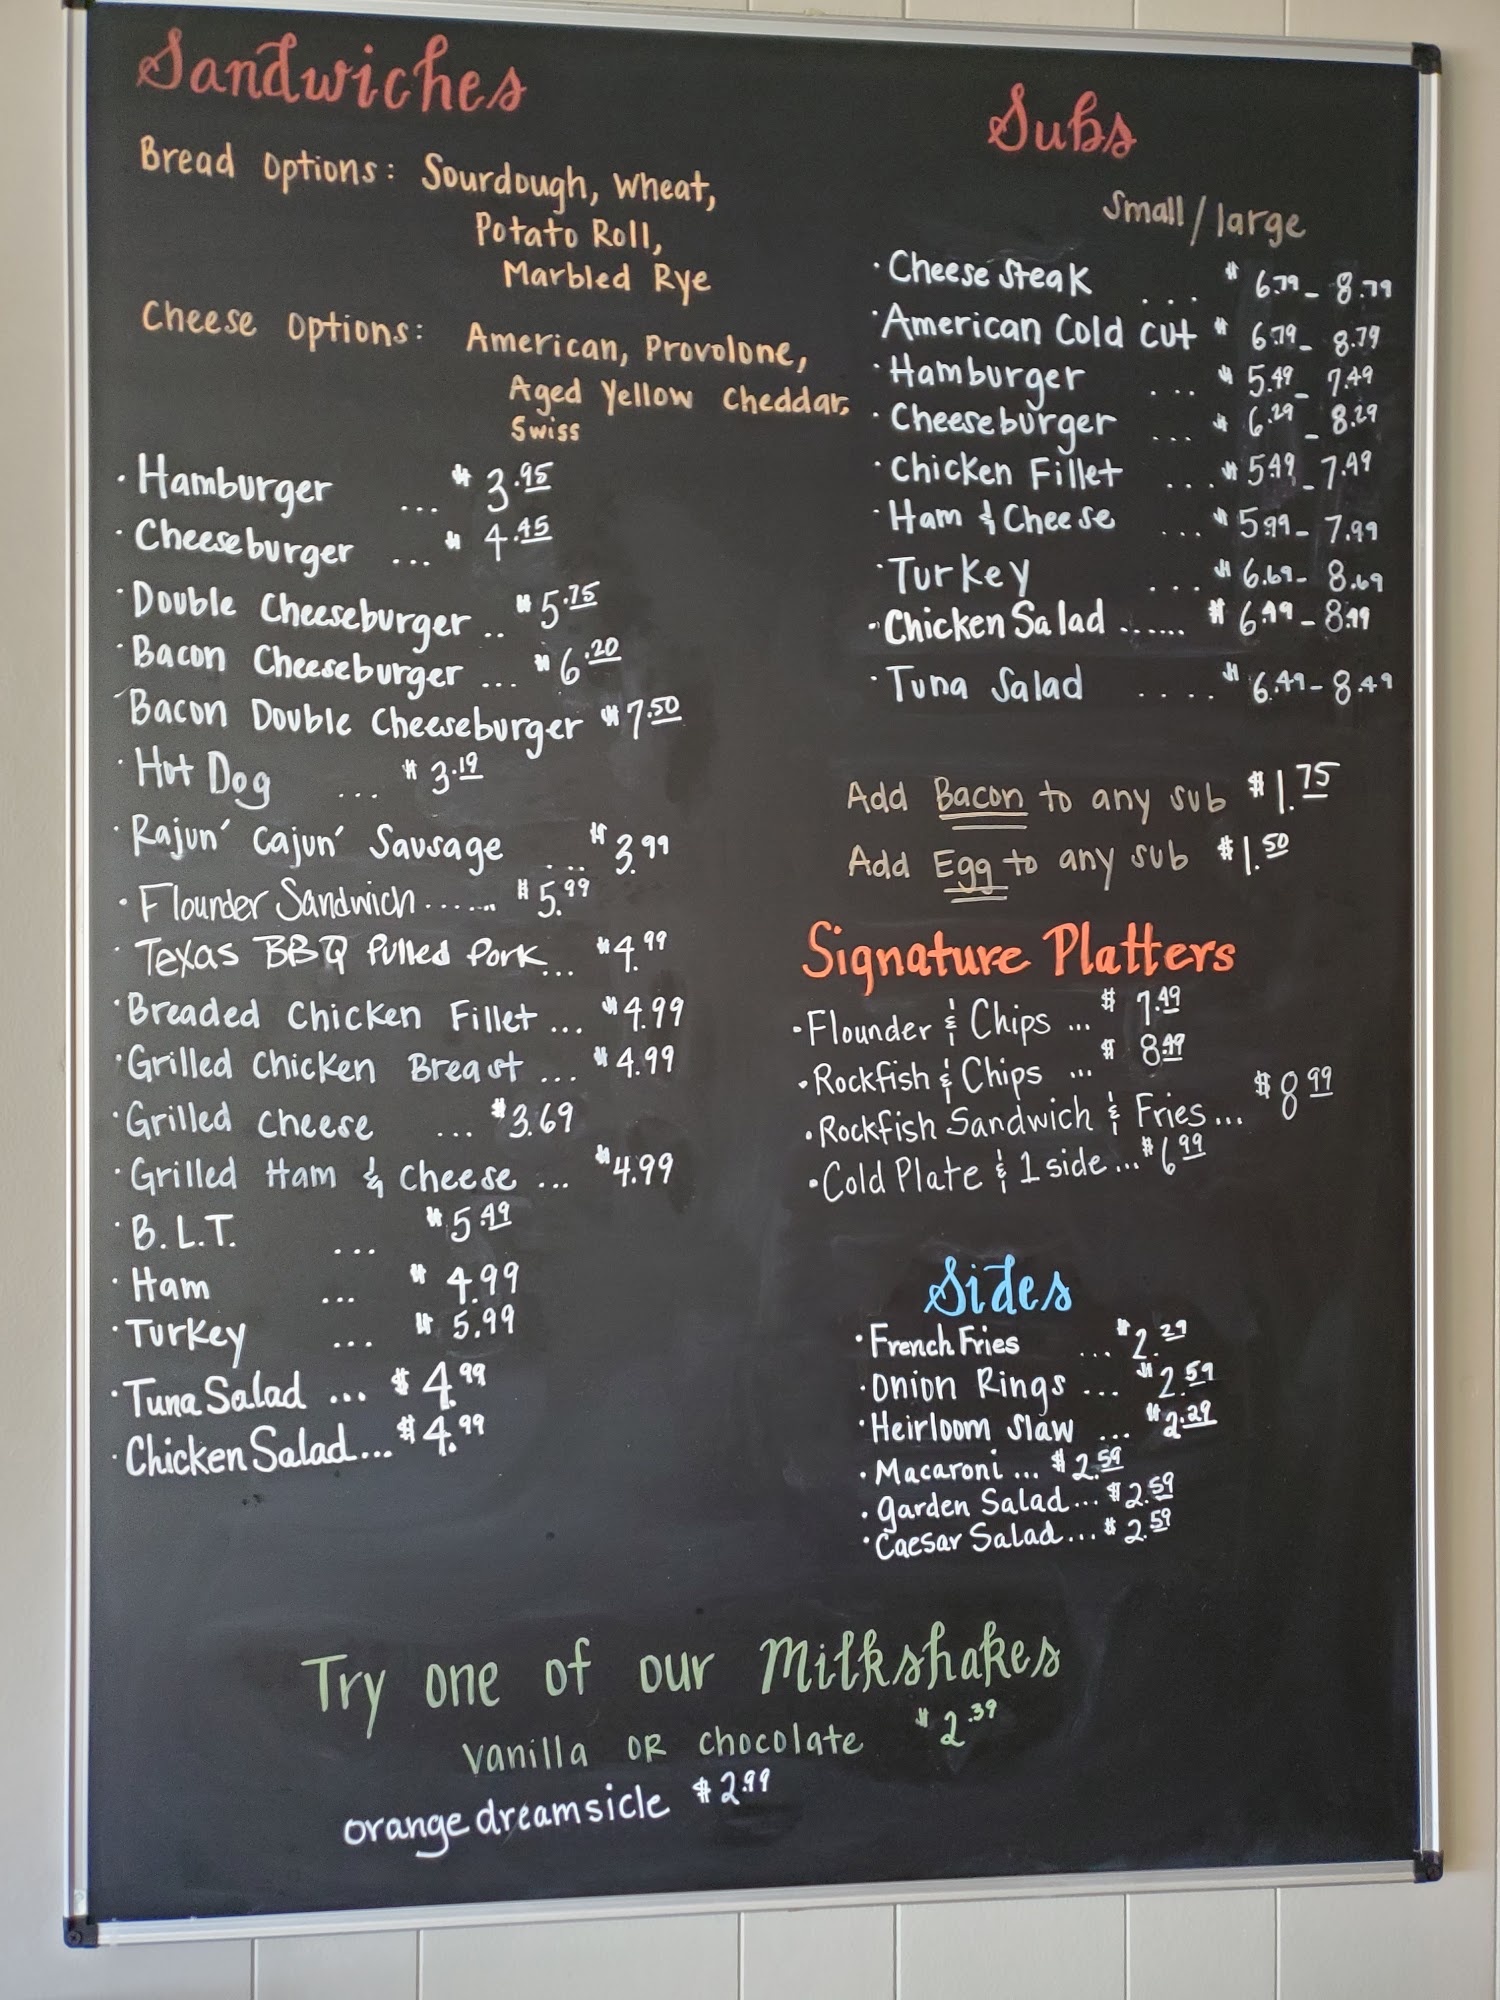 Sandwiches
Bread Options: Sourdough, Wheat,
Potato Roll,
Marbled Rye
Cheese Options: American, Provolone,
Aged Yellow Cheddar,
Swiss
· Hamburger ... $3.95
· Cheeseburger ... $4.45
· Double Cheeseburger .. $5.75
· Bacon Cheeseburger ... $6.20
· Bacon Double Cheeseburger $7.50
· Hot Dog ... $3.19
· Rajun' Cajun' Sausage ... $3.99
· Flounder Sandwich ...... $5.99
· Texas BBQ Pulled Pork... $4.99
· Breaded Chicken Fillet ... $4.99
· Grilled Chicken Breast ... $4.99
· Grilled Cheese ... $3.69
· Grilled Ham & Cheese ... $4.99
· B.L.T. ... $5.49
· Ham ... $4.99
· Turkey ... $5.99
· Tuna Salad ... $4.99
· Chicken Salad... $4.99
Subs
Small / large
· Cheese Steak ... $6.79 - 8.79
· American Cold Cut $6.79 - 8.79
· Hamburger ... $5.49 - 7.49
· Cheeseburger ... $6.29 - 8.29
· Chicken Fillet ... $5.49 - 7.49
· Ham & Cheese ... $5.99 - 7.99
· Turkey ... $6.69 - 8.69
· Chicken Salad ...... $6.49 - 8.49
· Tuna Salad .... $6.49 - 8.49
Add Bacon to any sub $1.75
Add Egg to any sub $1.50
Signature Platters
· Flounder & Chips ... $7.49
· Rockfish & Chips ... $8.49
· Rockfish Sandwich & Fries... $8.99
· Cold Plate & 1 side... $6.99
Sides
· French Fries ... $2.29
· Onion Rings ... $2.59
· Heirloom Slaw ... $2.29
· Macaroni ... $2.59
· Garden Salad... $2.59
· Caesar Salad... $2.59
Try one of our Milkshakes
Vanilla OR Chocolate $2.39
orange dreamsicle $2.99